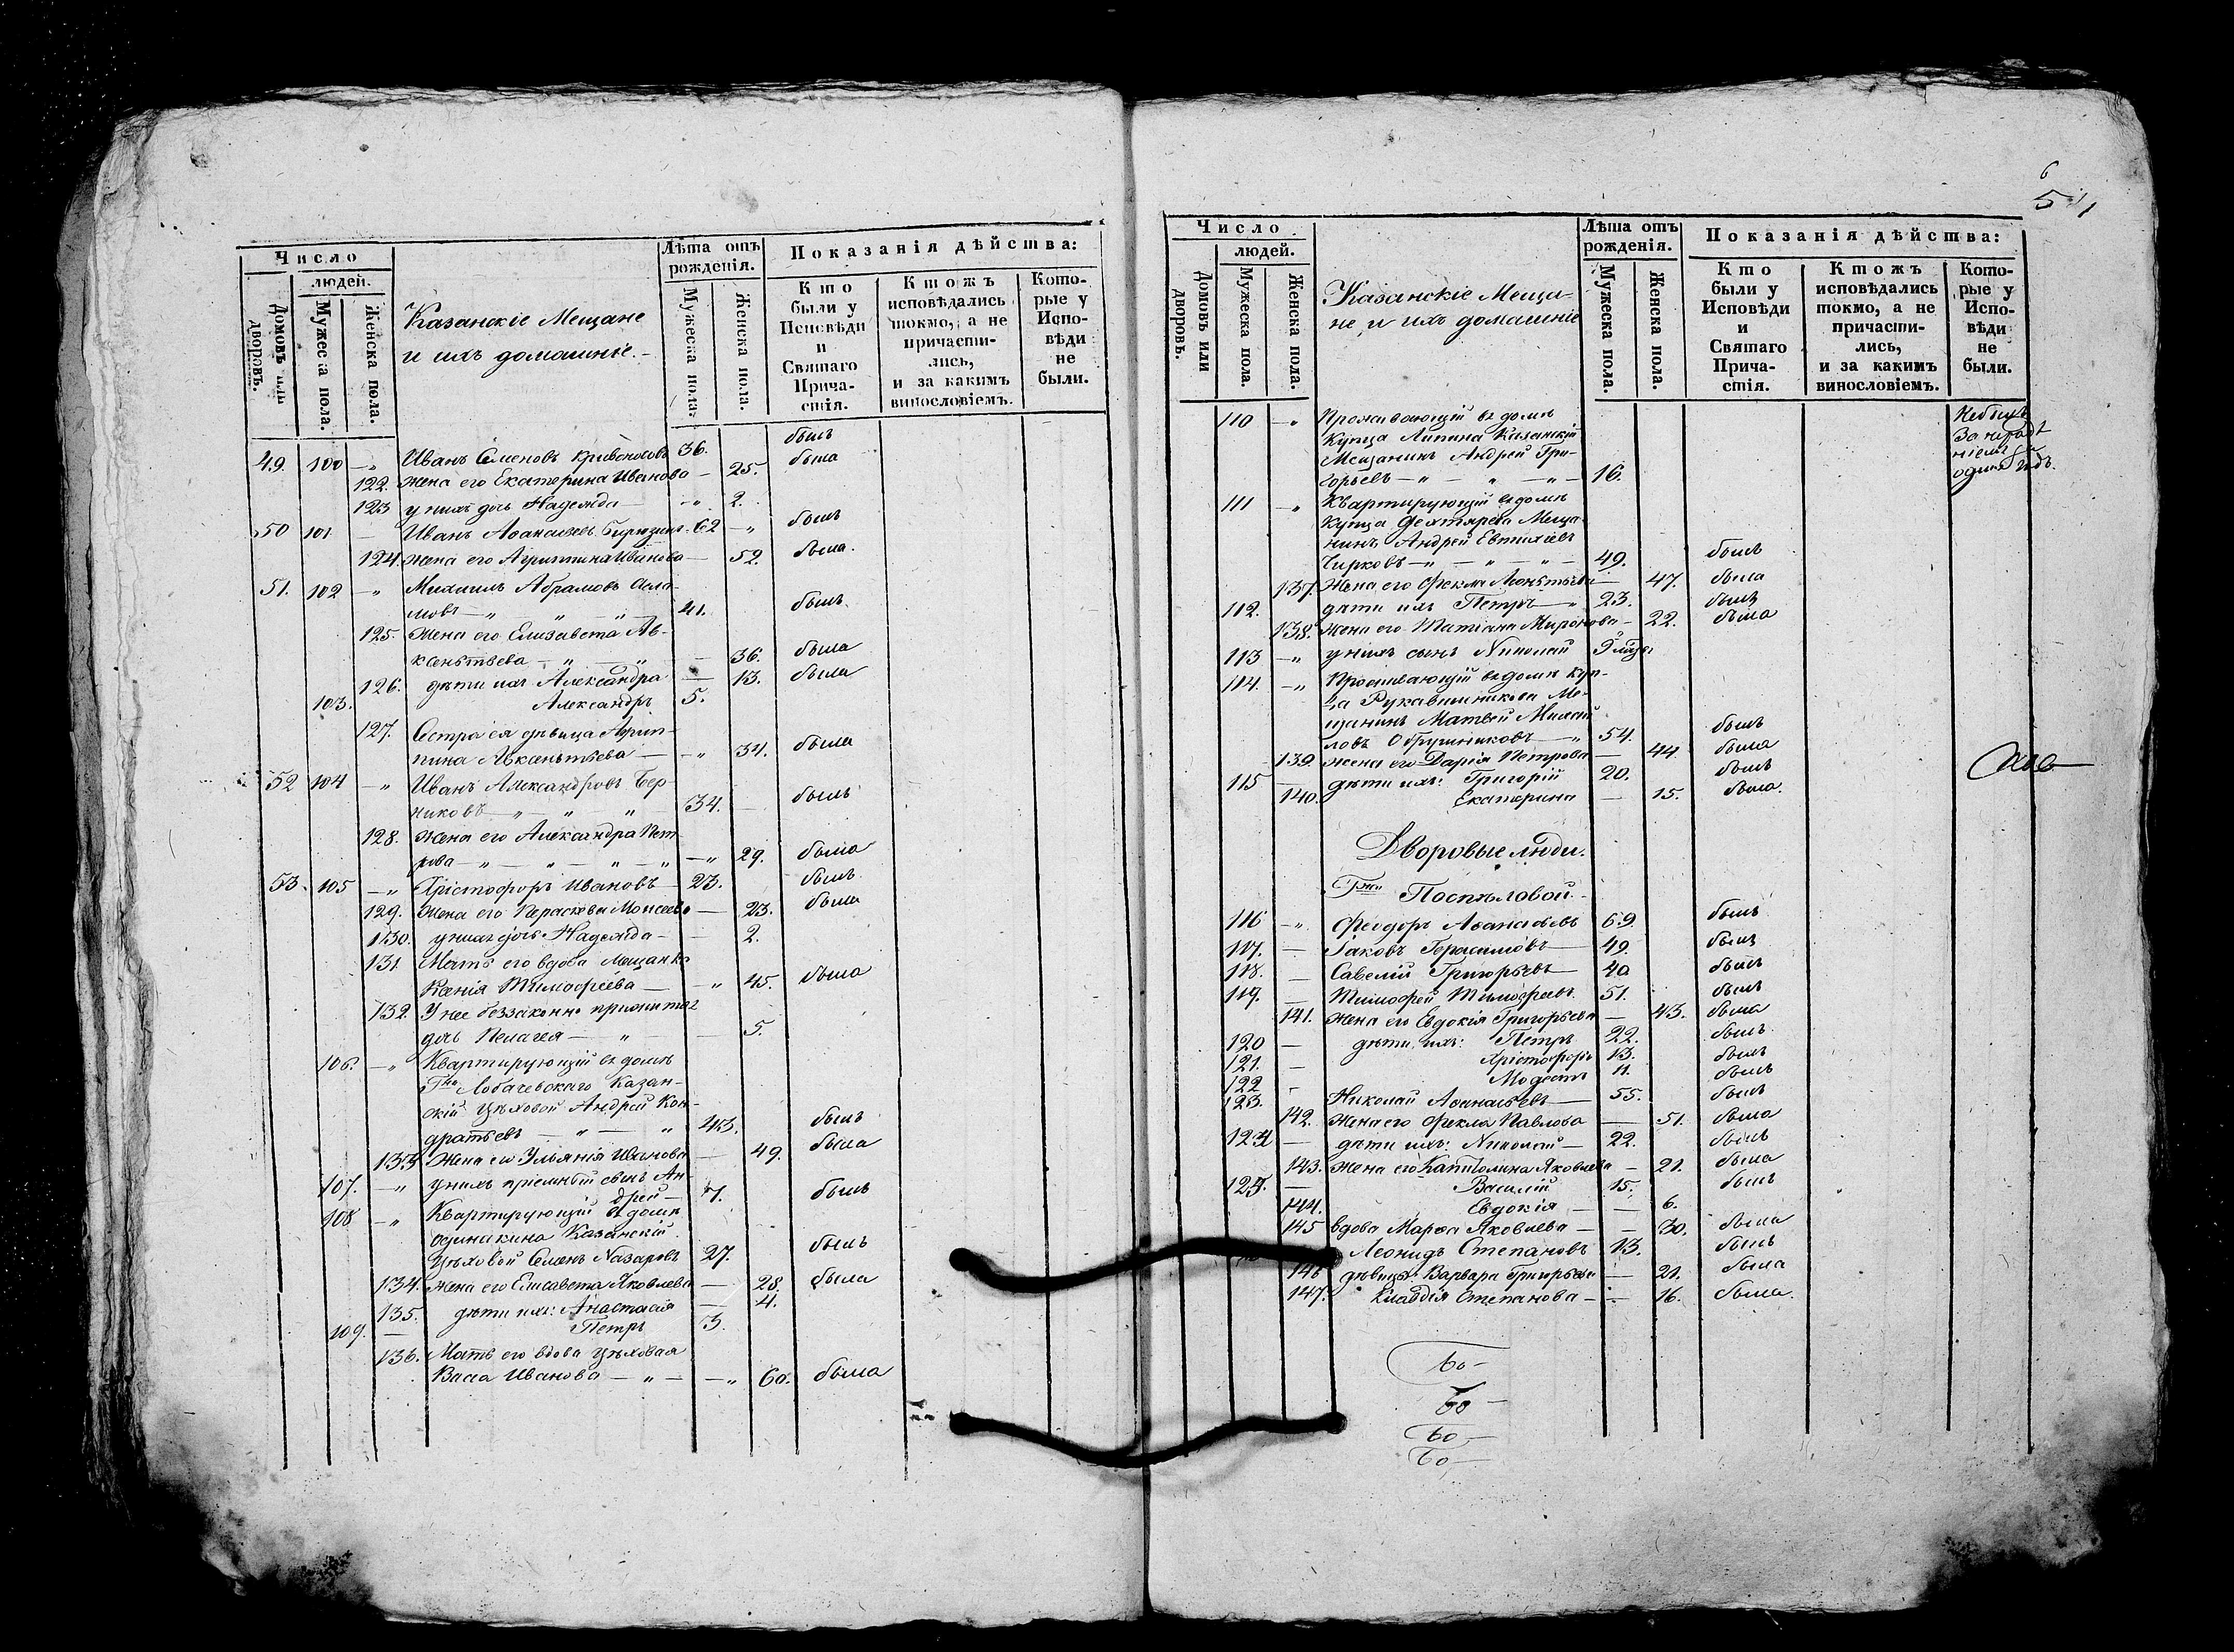 Число
людей.
Домовъ или дворовъ.
Мужеска пола.
Женска пола.
Казанскіе Мещане
и ихъ домашніе. –
Лѣта отъ
рожденія.
Мужеска пола.
Женска пола.
Показанія дѣйства:
Кто
были у
Исповѣди
и
Святаго
Прича-
стія.
Ктожъ
исповѣдались
токмо, а не
причасти-
лись,
и за какимъ
винословіемъ.
Кото-
рые у
Испо-
вѣди
не
были.
49. 100 – „ Иванъ Семеновъ Кривоносовъ 36. былъ
122. жена его Екатерина Иванова – 25. была
123 у нихъ дочь Надежда – „ 2.
50 101 – Иванъ Аѳанасьевъ 62 – „ былъ
124. жена его Агриппина Иванова – 52. была.
51. 102 – „ Михаилъ Абрамовъ Асла-
мовъ – „ „ – „ – 41. былъ.
125. Жена его Елизавета Ав-
ксентьева – „ – „ – 36. была
126. дѣти ихъ Александра – 13. была
103. Александръ 5.
127. Сестра ея дѣвица Агрип-
пина Авксентьева – – „ 34. была
52 104 – „ Иванъ Александровъ Бер-
никовъ – „ – „ „ 34. – былъ
128. Жена его Александра Пет-
рова – „ – „ – „ – „ – „ 29. была
53. 105 – „ Христофоръ Ивановъ – 23. былъ
129. Жена его Параскева Моисеева – 23. была
130. у нихъ дочь Надежда – – 2.
131. Мать его вдова Мещанка
Ксенія Тимофеева – – „ 45. была
132. У нее беззаконно прижитая
дочь Пелагея – „ – 5.
106. – „ Квартирующій въ домѣ
Гна Лобачевскаго Казан-
скій Цѣховой Андрей Кон-
дратьевъ – „ – „ 43. былъ
133 Жена его Ульянія Иванова – 49. была
107. – „ у нихъ пріемный сынъ Ан-
дрей – 7. былъ
108 – „ Квартирующій въ домѣ
Одинакина Казанскій
Цѣховой Семенъ Назаровъ 27. былъ
134. Жена его Елисавета Яковлева – 28. была
135. дѣти ихъ: Анастасія – 4.
109. – Петръ 3.
136. Мать его вдова Цѣховая
Васса Иванова – „ – – „ 60. была
6
54
Число
людей.
Домовъ или дворовъ.
Мужеска пола.
Женска пола.
Казанскіе Меща-
не, и ихъ домашніе
Лѣта отъ
рожденія.
Мужеска пола.
Женска пола.
Показанія дѣйства:
Кто
были у
Исповѣди
и
Святаго
Прича-
стія.
Ктожъ
исповѣдались
токмо, а не
причасти-
лись,
и за какимъ
винословіемъ.
Кото-
рые у
Испо-
вѣди
не
были.
110 – „ Проживающій въ домѣ
Купца Липина Казанскій
Мещанинъ Андрей Гри-
горьевъ – „ – „ – „ – 16.
Небылъ
За нерадѣ
ніемъ
одинъ годъ.
111 – „ Квартирующій въ домѣ
Купца Дехтярева Меща-
нинъ Андрей Евтихіевъ
Чирковъ – „ – „ – „ – 49. былъ
137. Жена его Фекла Леонтьева – 47. была
112. дѣти ихъ Петръ – „ 23. былъ
138. Жена его Татіана Миронова – 22. была
113 – „ у нихъ сынъ Николай
114. – „ Проживающій въ домѣ Куп-
ца Рукавишникова Ме-
щанинъ Матвей Михай-
ловъ Обручниковъ – „ 54. былъ
139. жена его Дарія Петрова – 44. была
115 – дѣти ихъ: Григорій 20. былъ
140. Екатерина – 15. была.
Дворовые люди.
Гжи Поспѣловой. –
116 – „ Феодоръ Аѳанасьевъ 69 былъ
117. – Іаковъ Герасимовъ – 49. былъ
118. – Савелій Григорьевъ – 40 былъ
119. – Тимофей Тимофеевъ. 51. былъ
141. Жена его Евдокія Григорьева – 43. была
120 – дѣти ихъ: Петръ 22. былъ
121. – Христофоръ 13. былъ
122 – Модестъ 11. былъ
123. Николай Аѳанасьевъ – 55. былъ
142. Жена его Фекла Павлова – 51. была
124 – дѣти ихъ: Николай – 22. былъ
143. Жена его Капитолина Яковлева – 21. была
125. – Василій 15. былъ
144. Евдокія – 6.
145 вдова Марѳа Яковлева – – 30. была
Леонидъ Степановъ 13. былъ
146 дѣвицы: Варвара Григорьева – 21. была
147. Клавдія Степанова – – 16. была.